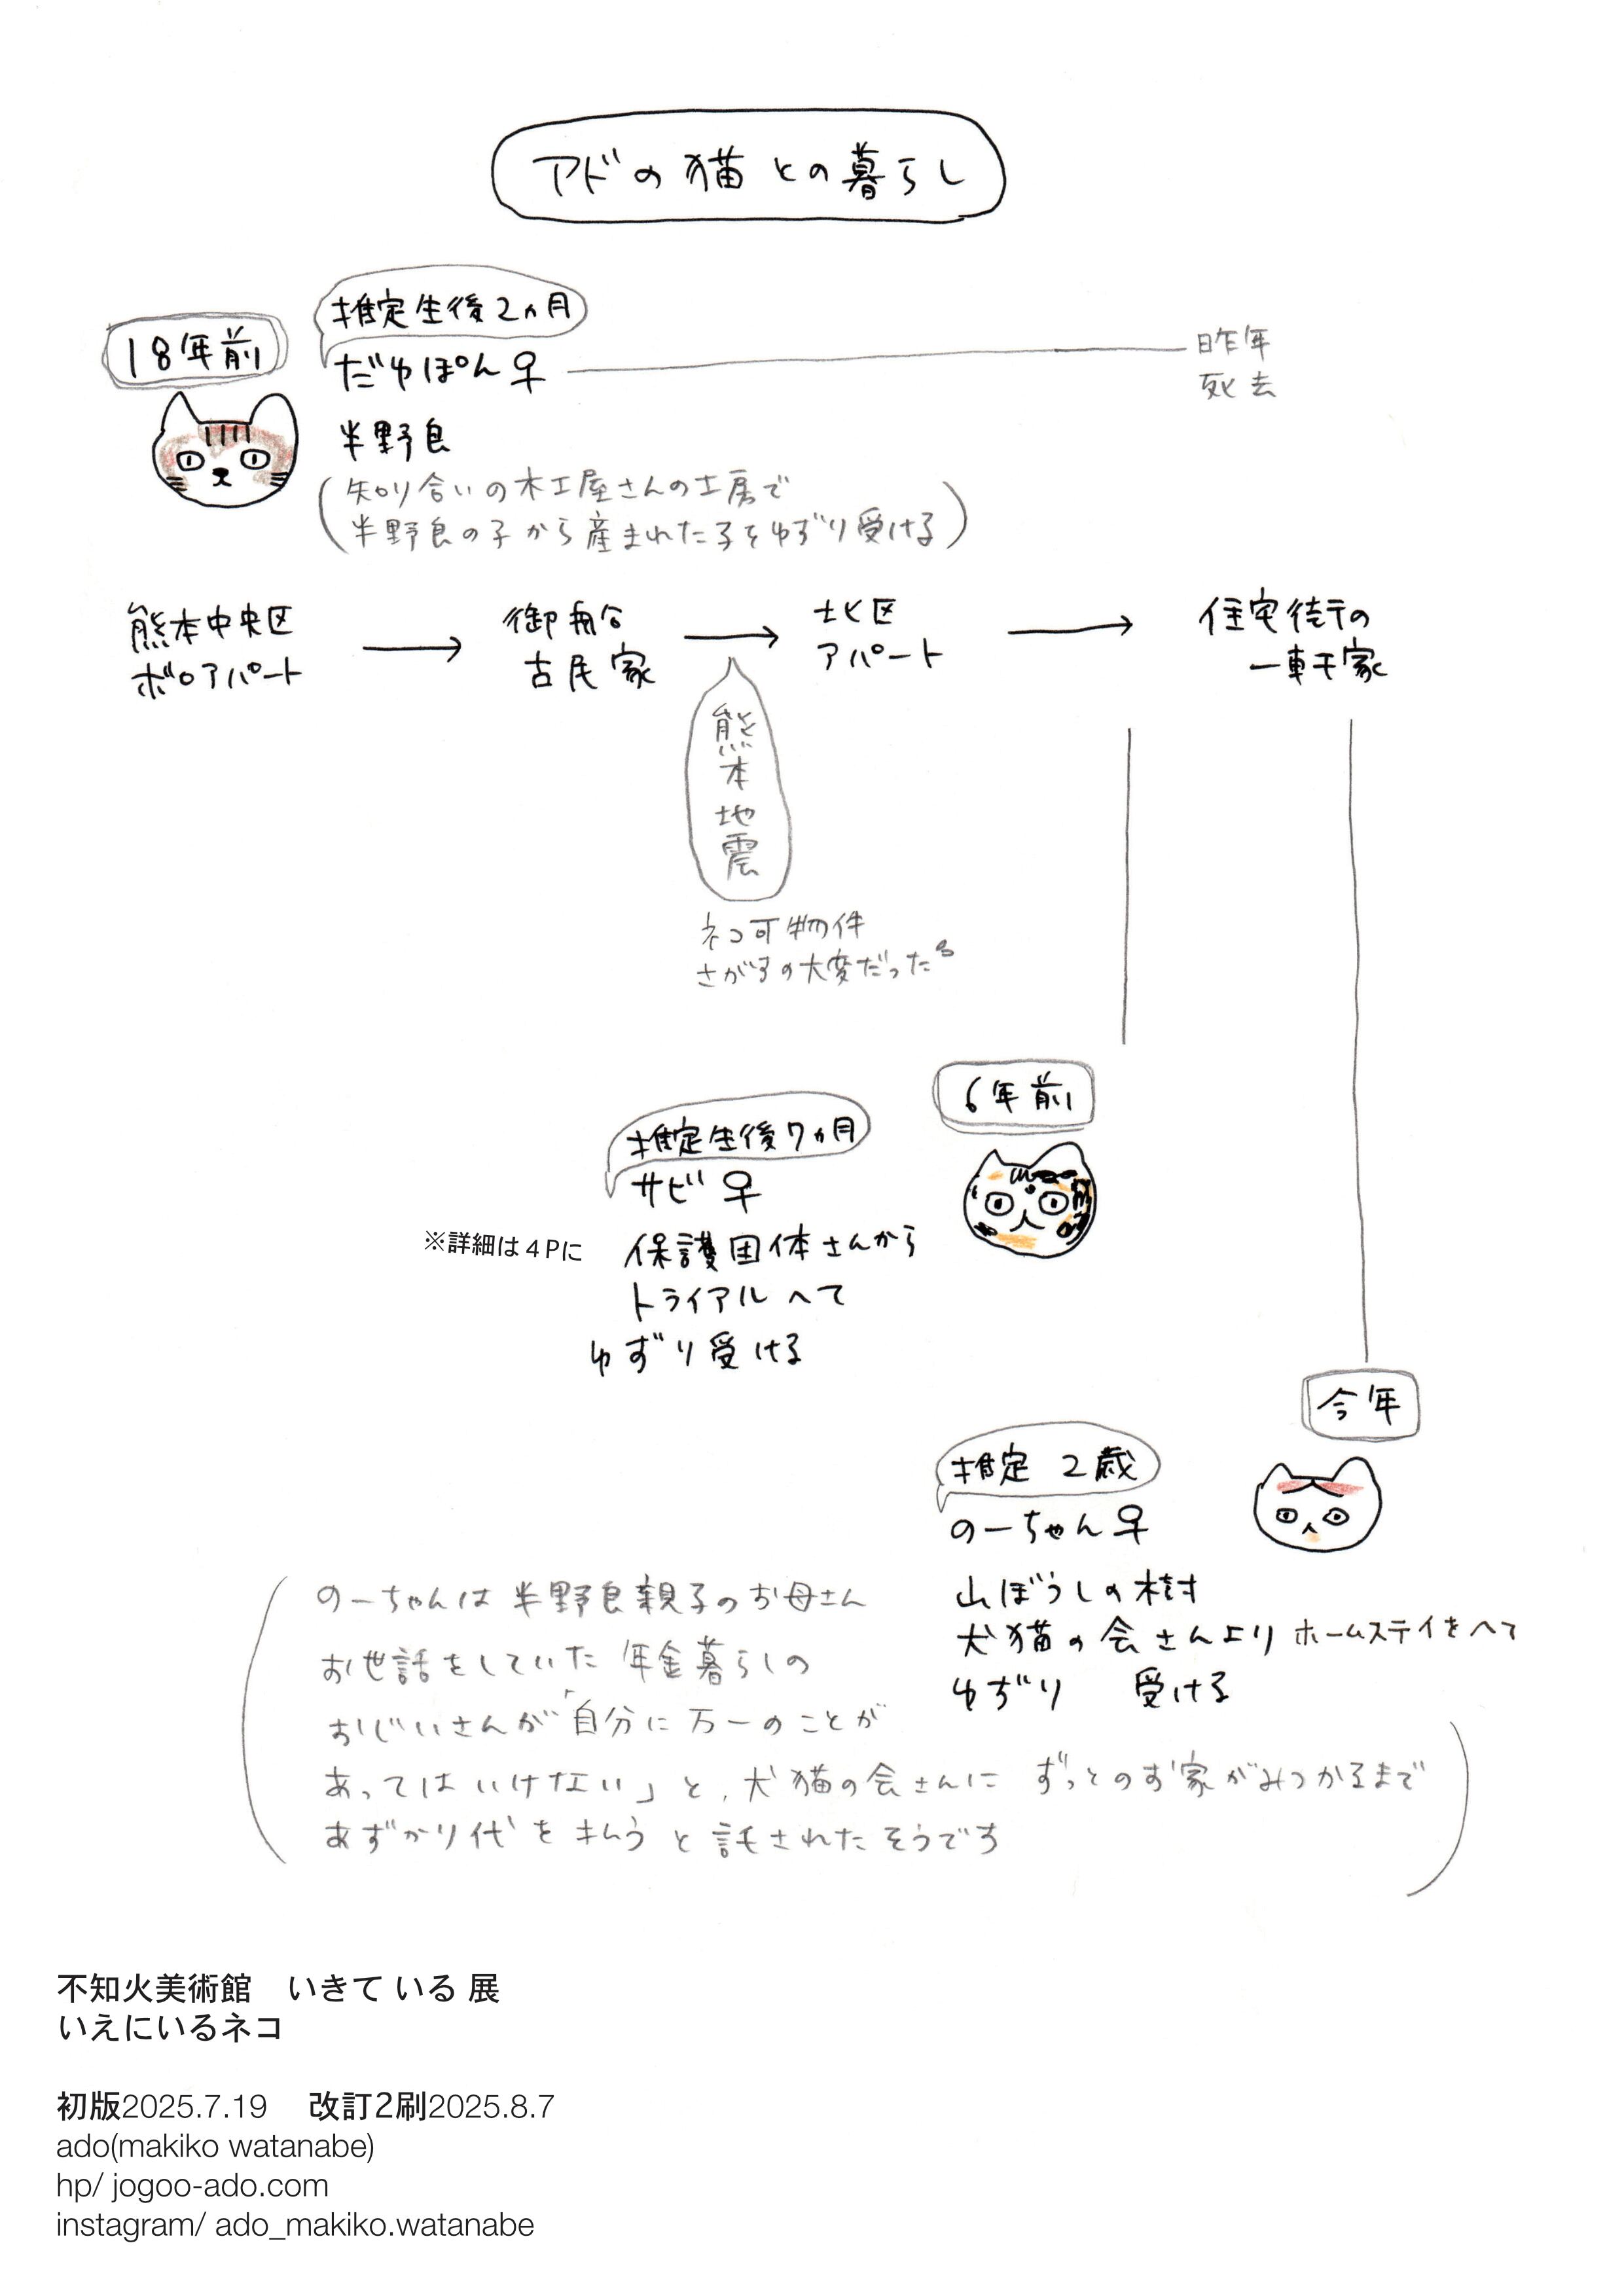 アドの猫との暮らし
18年前
推定生後2ヵ月
だゆぽん♀
昨年
死去
半野良
(知り合いの木工屋さんの工房で
半野良の子から産まれた子をゆずり受ける)
熊本中央区
ボロアパート
→
御船
古民家
→
北区
アパート
→
住宅街の
一軒家
熊本地震
ネコ可物件
さがすの大変だった
6年前
推定生後7ヵ月
サビ♀
※詳細は4Pに
保護団体さんから
トライアルへて
ゆずり受ける
今年
推定 2歳
のーちゃん♀
山ぼうしの樹
犬猫の会さんより ホームステイをへて
ゆずり 受ける
(のーちゃんは半野良親子のお母さん
お世話をしていた年金暮らしの
おじいさんが「自分に万一のことが
あってはいけない」と、犬猫の会さんに ずっとのお家がみつかるまで
あずかり代を払うと託されたそうです)
不知火美術館 いきて いる 展
いえにいるネコ
初版2025.7.19 改訂2刷2025.8.7
ado(makiko watanabe)
hp/ jogoo-ado.com
instagram/ ado_makiko.watanabe